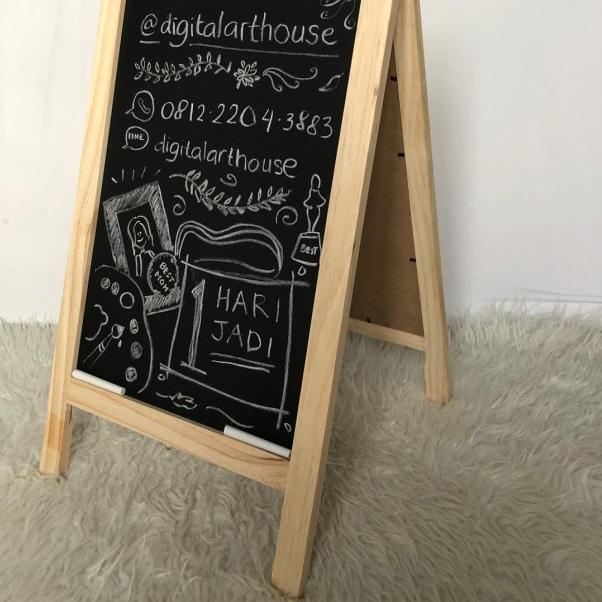 @digitalarthouse
0812·2204·3883
LINE
digitalarthouse
BEST
BEST
MOM
1 HARI
JADI